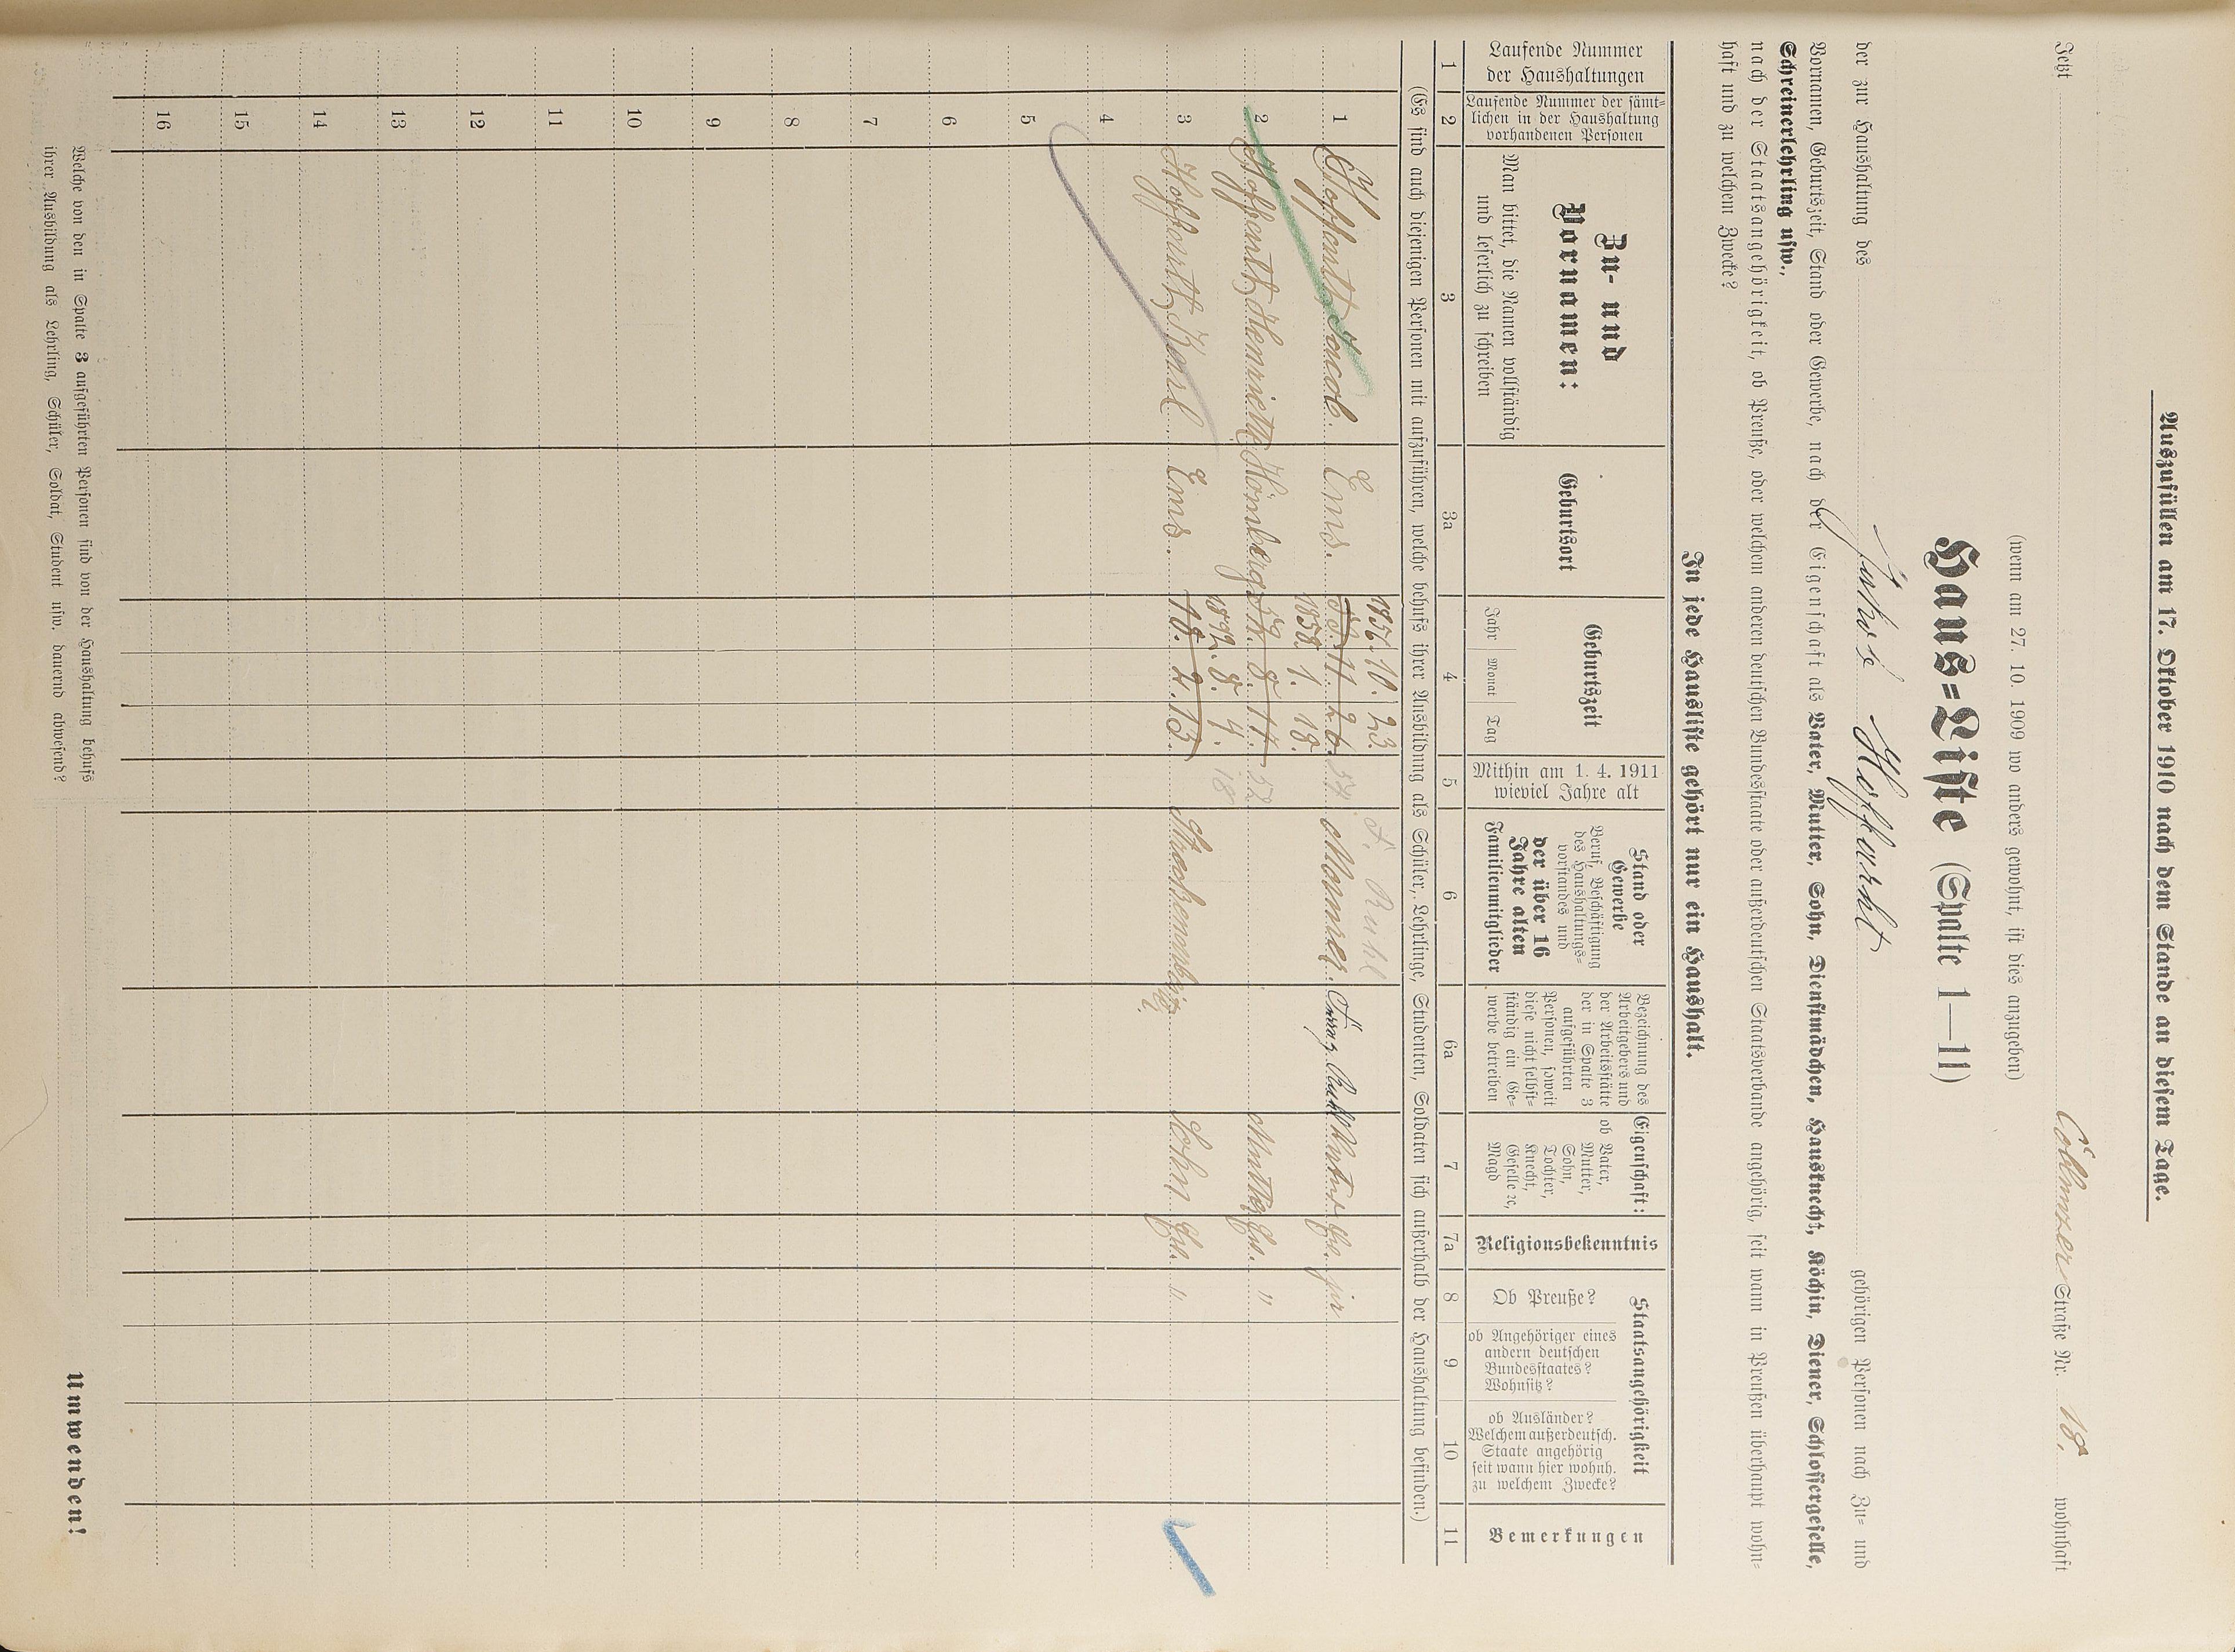 Auszufüllen am 17. Oktober 1910 nach dem Stande an diesem Tage.
Jetzt Coblenzer Straße Nr. 18. wohnhaft
(wenn am 27. 10. 1909 wo anders gewohnt, ist dies anzugeben)
Haus-Liste (Spalte 1—11)
der zur Haushaltung des gehörigen Personen nach Zu- und
Vornamen, Geburtszeit, Stand oder Gewerbe, nach der Eigenschaft als Vater, Mutter, Sohn, Dienstmädchen, Hausknecht, Köchin, Diener, Schlossergeselle,
Schreinerlehrling usw.,
nach der Staatsangehörigkeit, ob Preuße, oder welchem anderen deutschen Bundesstaate oder außerdeutschen Staatsverbande angehörig, seit wann in Preußen überhaupt wohn-
haft und zu welchem Zwecke?
In jede Hausliste gehört nur ein Haushalt.
Laufende Nummer
der Haushaltungen
Laufende Nummer der sämt-
lichen in der Haushaltung
vorhandenen Personen
Zu- und
Vornamen:
Man bittet, die Namen vollständig
und leserlich zu schreiben
Geburtsort
Geburtszeit
Jahr Monat Tag
Mithin am 1. 4. 1911
wieviel Jahre alt
Stand oder
Gewerbe
Beruf, Beschäftigung
des Haushaltungs-
vorstandes und
der über 16
Jahre alten
Familienmitglieder
Bezeichnung des
Arbeitgebers und
der Arbeitsstätte
der in Spalte 3
aufgeführten
Personen, soweit
diese nicht selbst-
ständig ein Ge-
werbe betreiben
Eigenschaft:
ob Vater,
Mutter,
Sohn,
Tochter,
Knecht,
Geselle ꝛc,
Magd
Religionsbekenntnis
Staatsangehörigkeit
Ob Preuße?
ob Angehöriger eines
andern deutschen
Bundesstaates?
Wohnsitz?
ob Ausländer?
Welchem außerdeutsch.
Staate angehörig
seit wann hier wohnh.
zu welchem Zwecke?
Bemerkungen
1 2 3 3a 4 5 6 6a 7 7a 8 9 10 11
(Es sind auch diejenigen Personen mit aufzuführen, welche behufs ihrer Ausbildung als Schüler, Lehrlinge, Studenten, Soldaten sich außerhalb der Haushaltung befinden.)
1857. 10. 23. F. Ruhl
1 Jacob. Ems. 11. 26. Ruhl Ev. ja
1858. 1. 18.
2 Henriette 8. 17. 52 Ev. "
1892. 8. 4. 18
3 Karl Ems. 18. Sohn Ev. "
4
5
6
7
8
9
10
11
12
13
14
15
16
Welche von den in Spalte 3 aufgeführten Personen sind von der Haushaltung behufs
ihrer Ausbildung als Lehrling, Schüler, Soldat, Student usw. dauernd abwesend?
Umwenden!